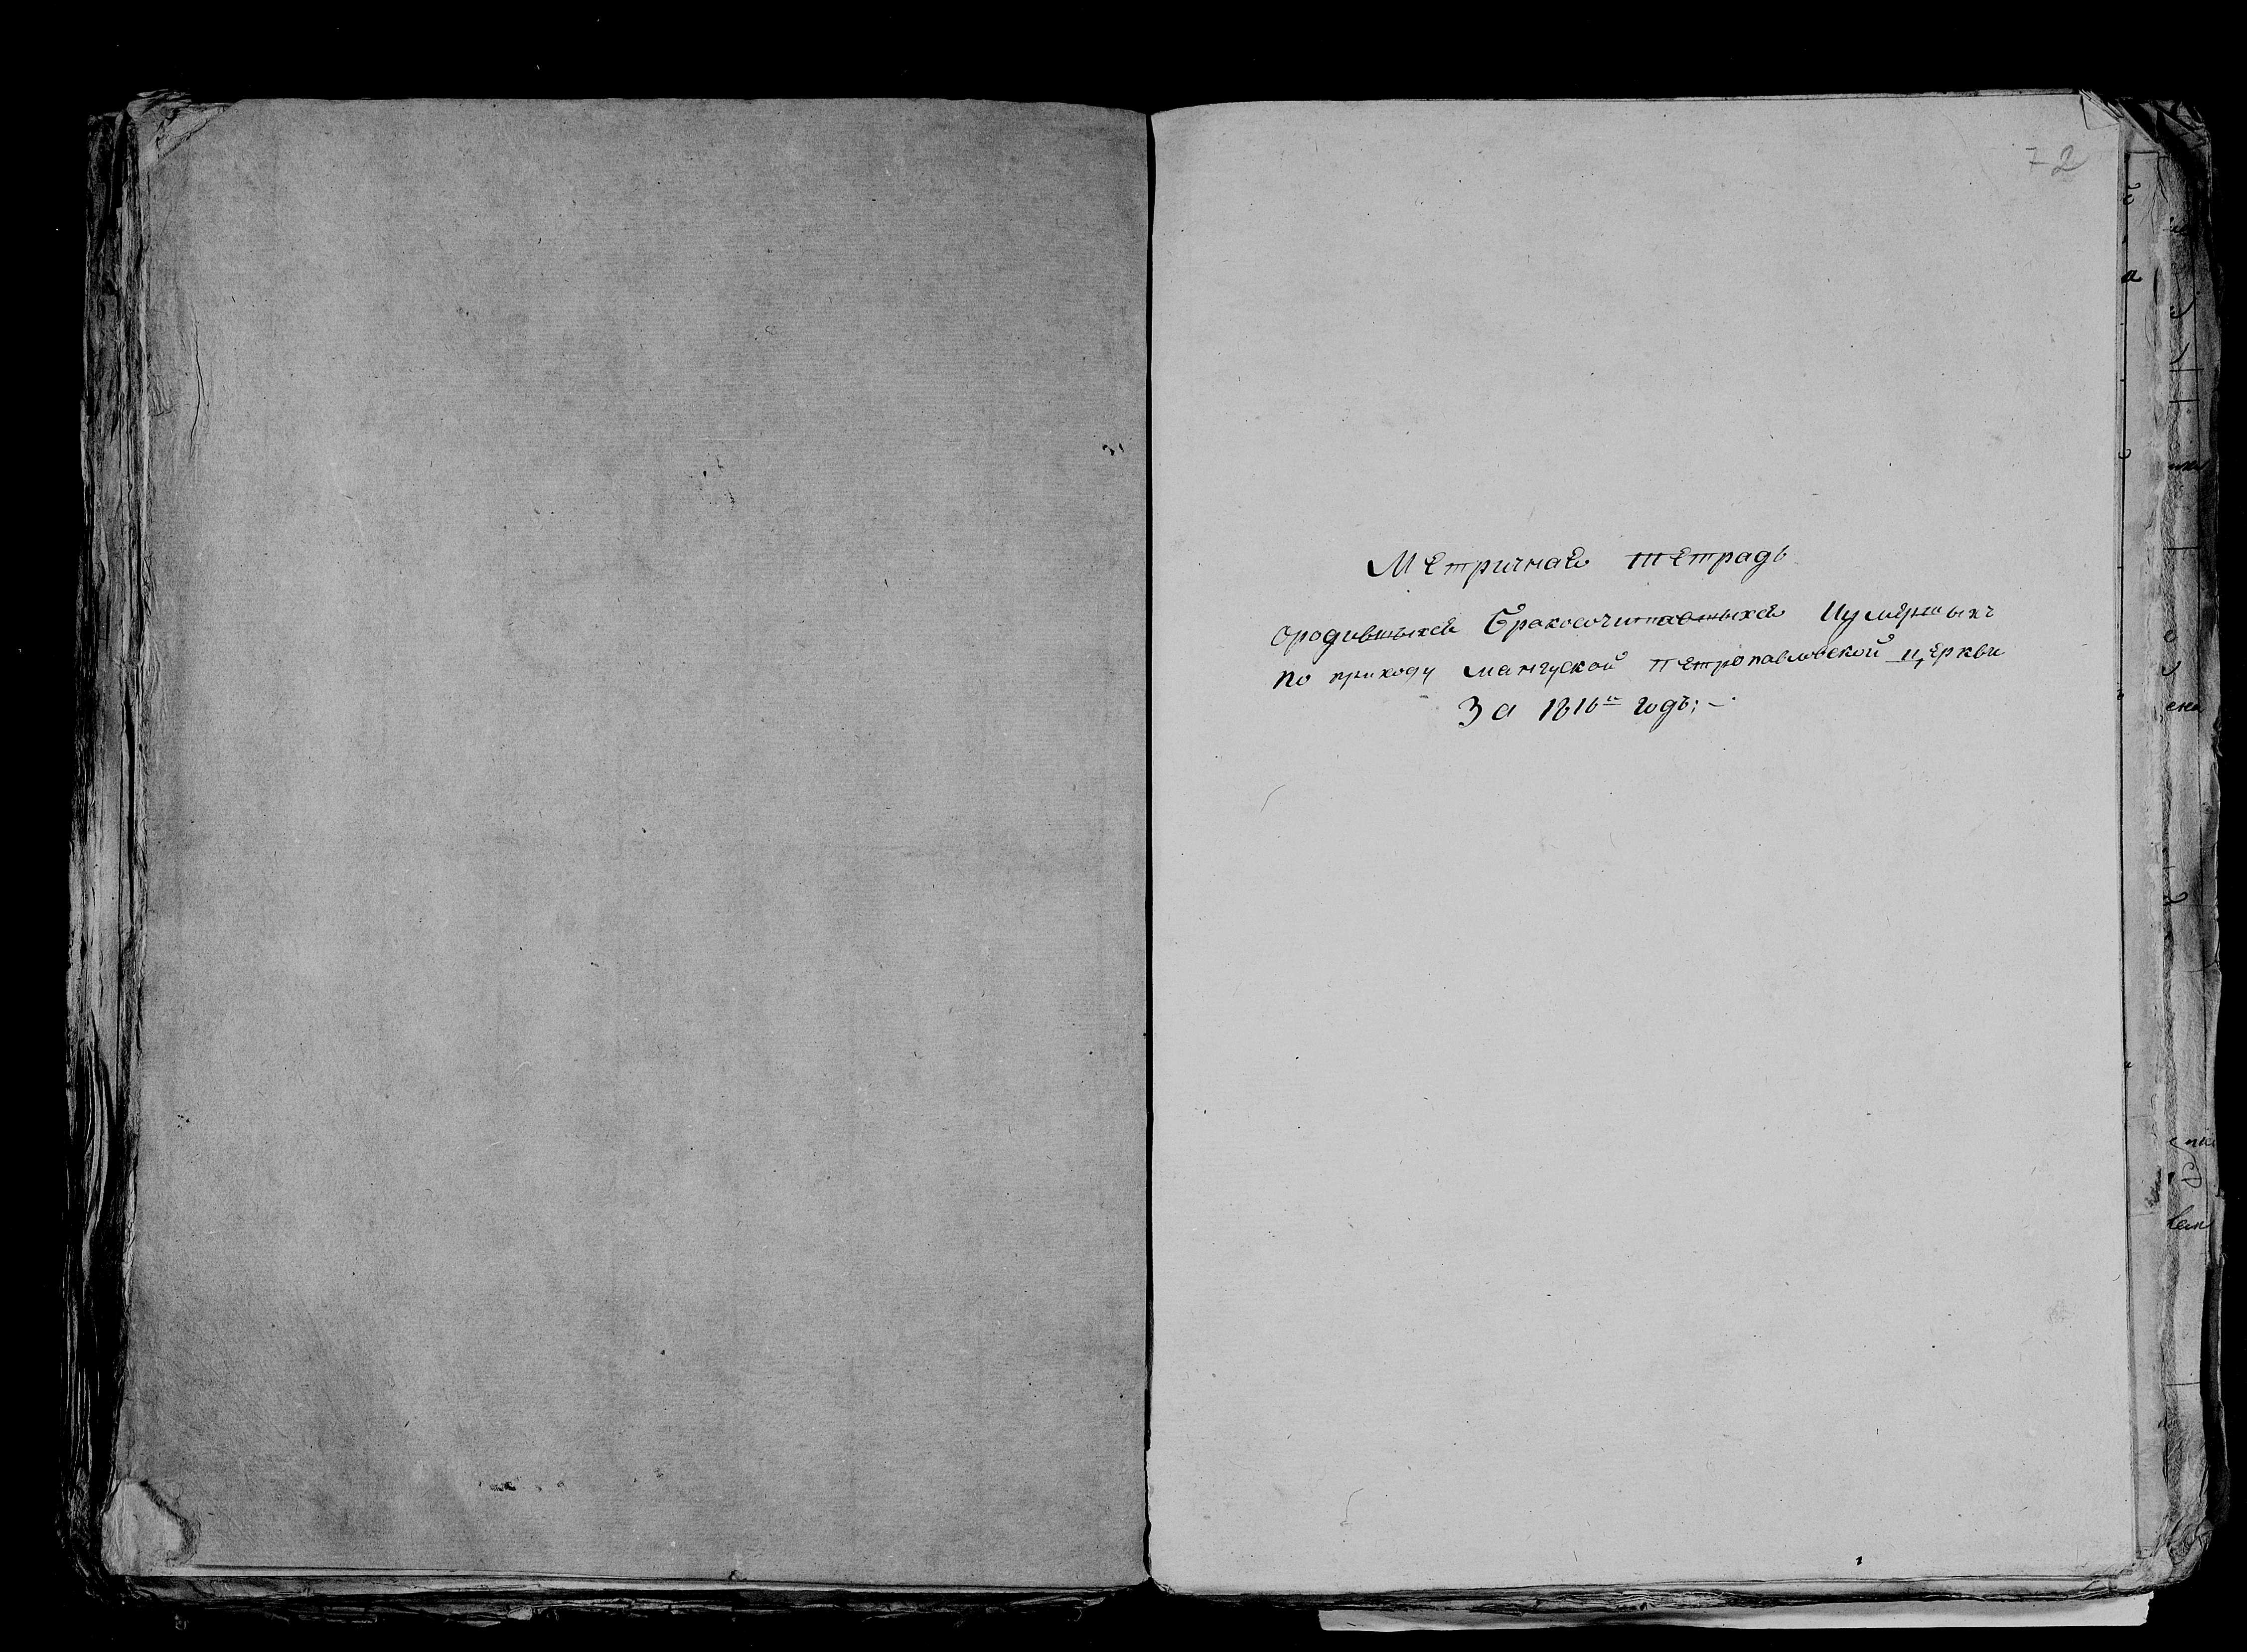 72
Метричная тетрадь
ородившыхся Бракосочитавшыхся Иумершыхъ
по приходу мангуской петропавловской церкви
За 1816й годъ; –